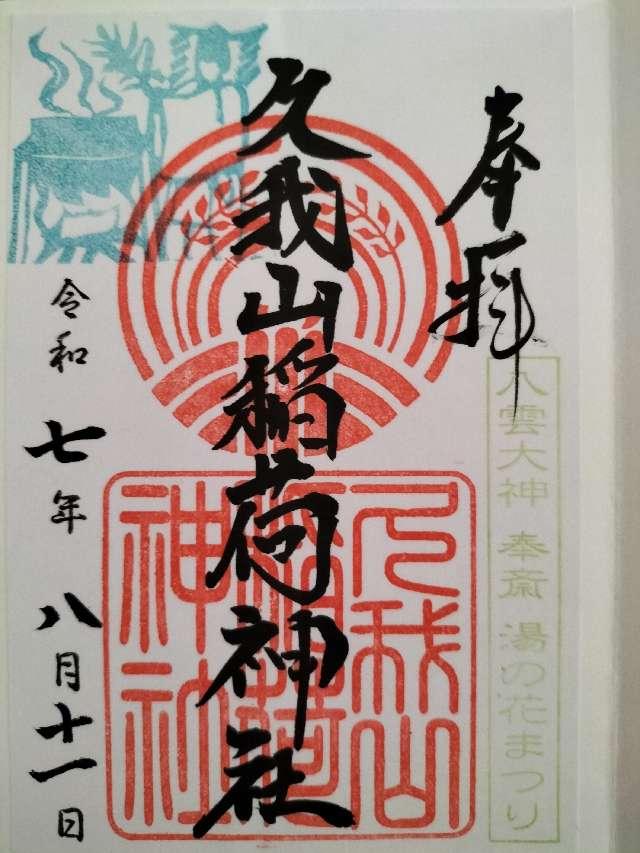 奉拝
八雲大神 奉斎 湯の花まつり
久我山稲荷神社
久我山
稲荷
神社
令和七年八月十一日